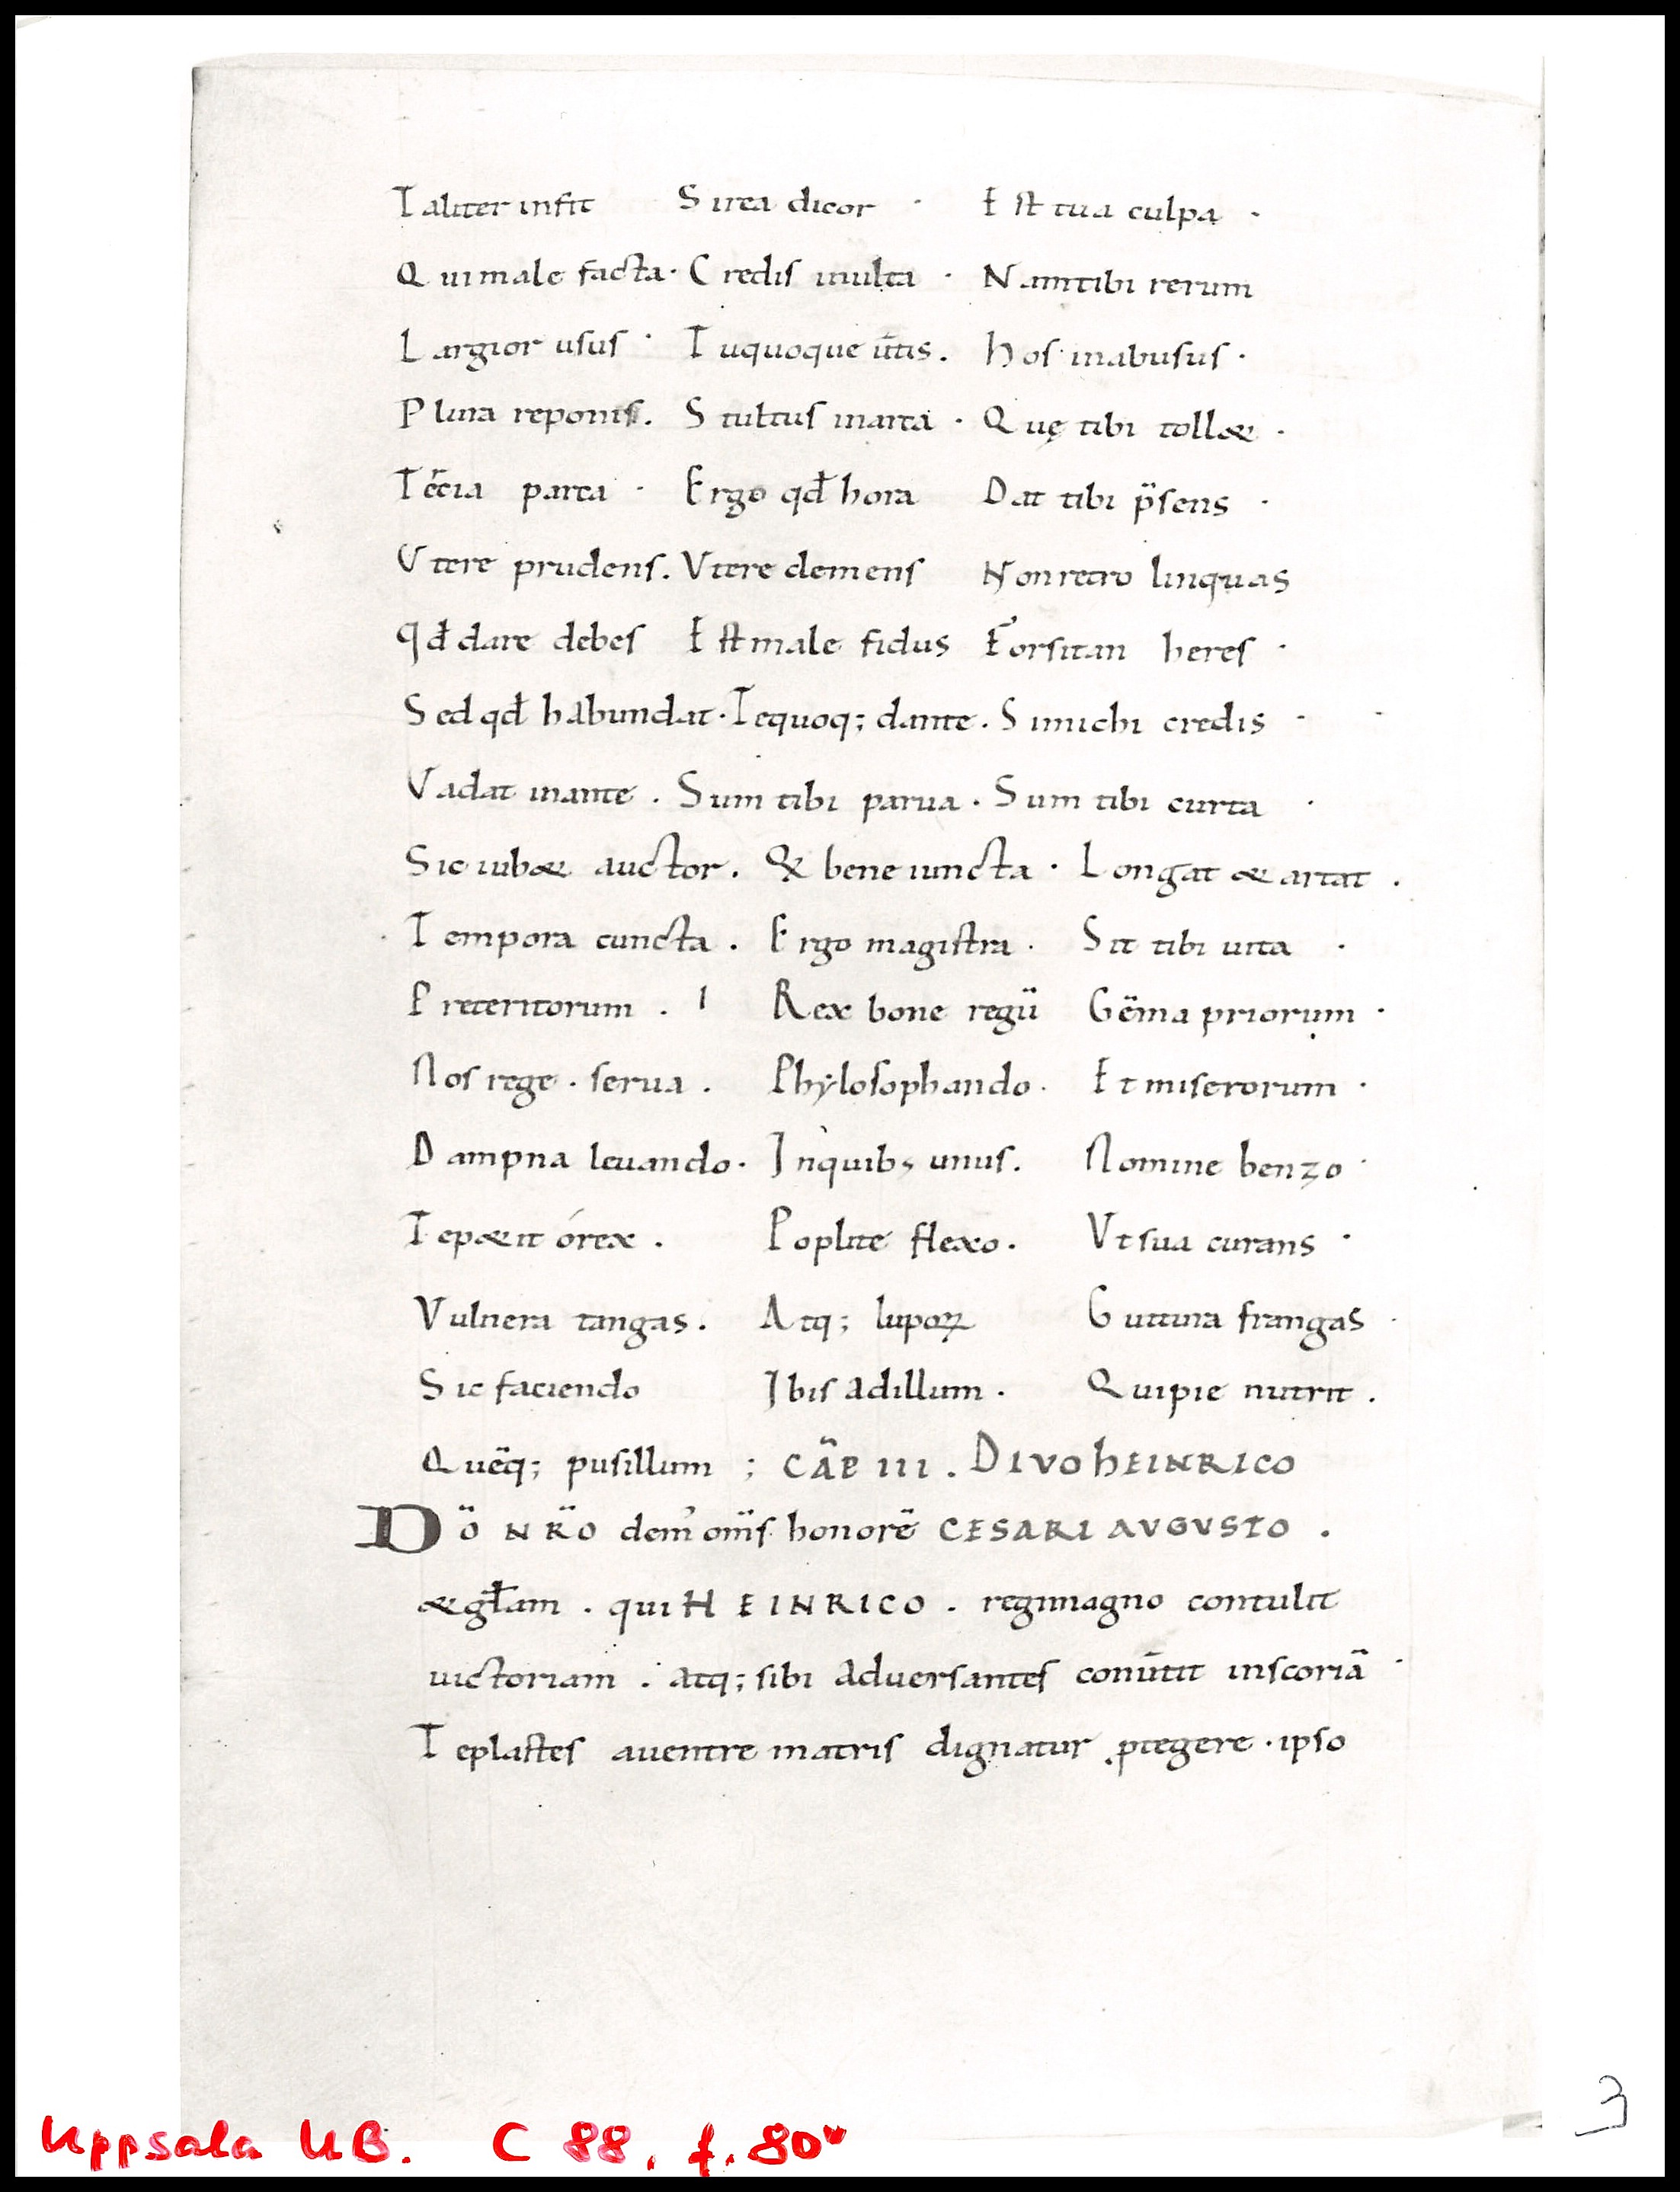 Taliter infit Sirea dicor · Est tua culpa ·
Qui male facta · Credis inulta · Nam tibi rerum
Largior usus · Tu quoque ūtis . hos in abusus ·
Plura reponis . Stultus in arta · Quę tibi tollæ ·
Tēcia parca · Ergo qđ hora Dat tibi p̈sens ·
Vtere prudens . Vtere demens Non retro linquas
qđ dare debes Est male fidus Forsitan heres ·
Sed qđ habundat · Te quoq; dante . Si michi credis ·
Vadat in ante . Sum tibi parua . Sum tibi curta ·
Sic iubæ auctor . & bene iuncta · Longat æ artat .
Tempora cuncta . Ergo magistra · Sit tibi uita ·
Preteritorum . I Rex bone regū Gēma priorum ·
Nos rege · serua . Phylosophando · Et miserorum ·
Dampna leuando · In quibs unus . Nomine benzo ·
Te pæit órex . Poplite flexo . Vt sua curans ·
Vulnera tangas . Atq; lupoꝝ Guttura frangas ·
Sic faciendo Ibis ad illum . Qui pie nutrit .
Quēq; pusillum ; CĀP III . DIVO hEINRICO
DŌ NR̄O dem' om̄s honorē CESARI AVGVSTO .
æ gƚam . qui HEINRICO . regi magno contulit
uictoriam . atq; sibi aduersantes conūtit in scoriā ·
Te plastes a uentre matris dignatur ꝓtegere · ipso
Uppsala UB. C 88, f. 80v
3